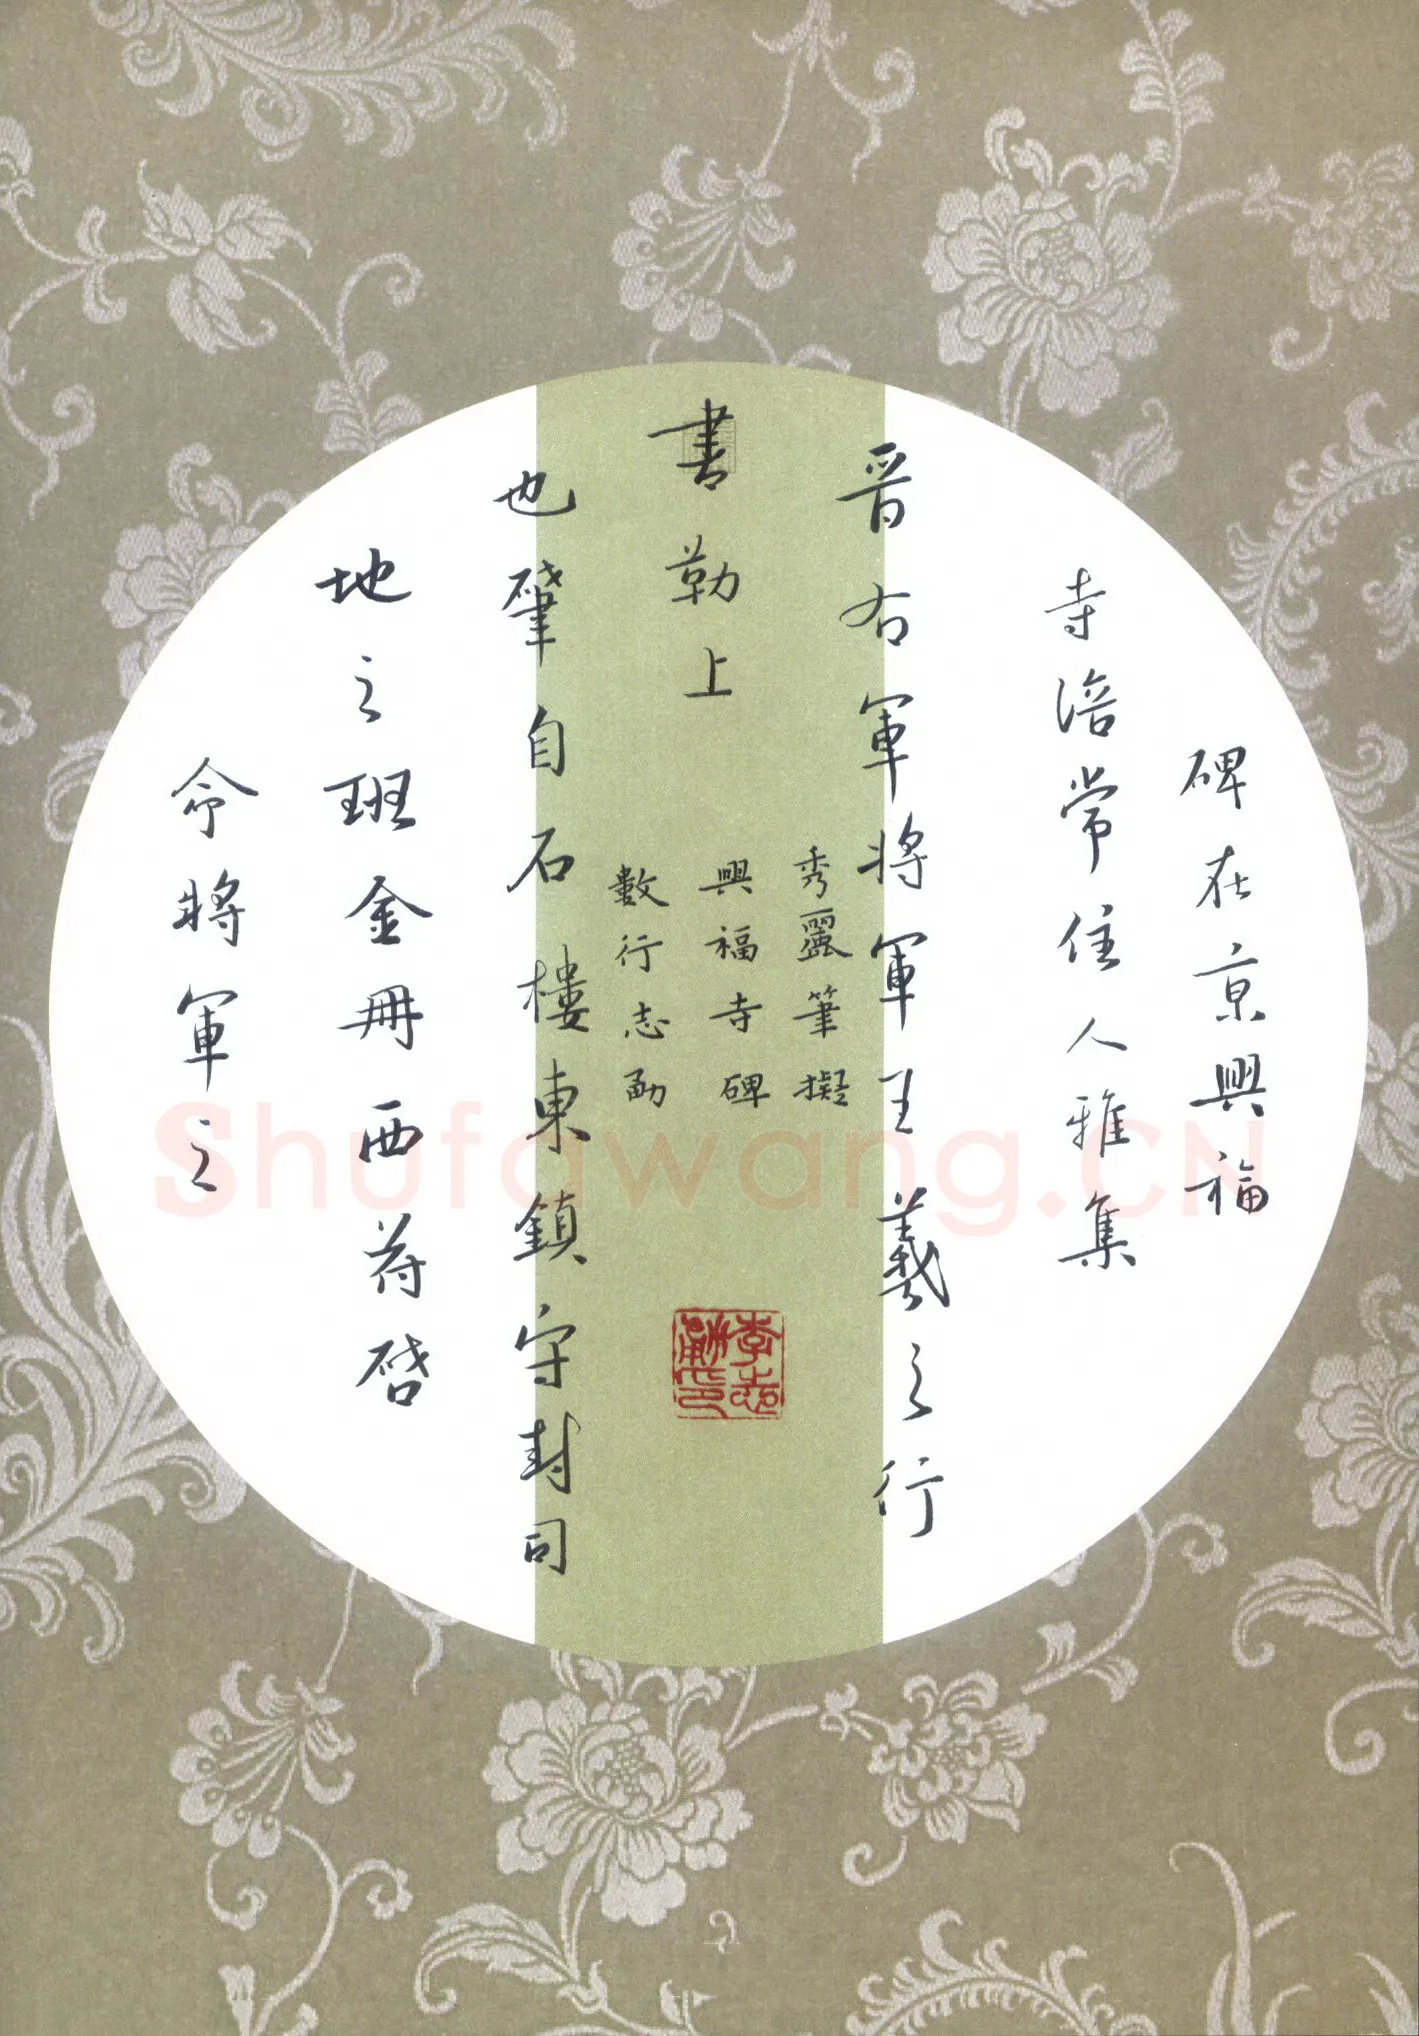 碑在京興福
寺涪常住人雅集
晋右軍將軍王羲之行
書勒上
也肇自石樓東鎮守封司
地之班金冊西苻啓
命將軍之
秀麗筆擬
興福寺碑
數行志勈
李志勈印
Shufawang.CN